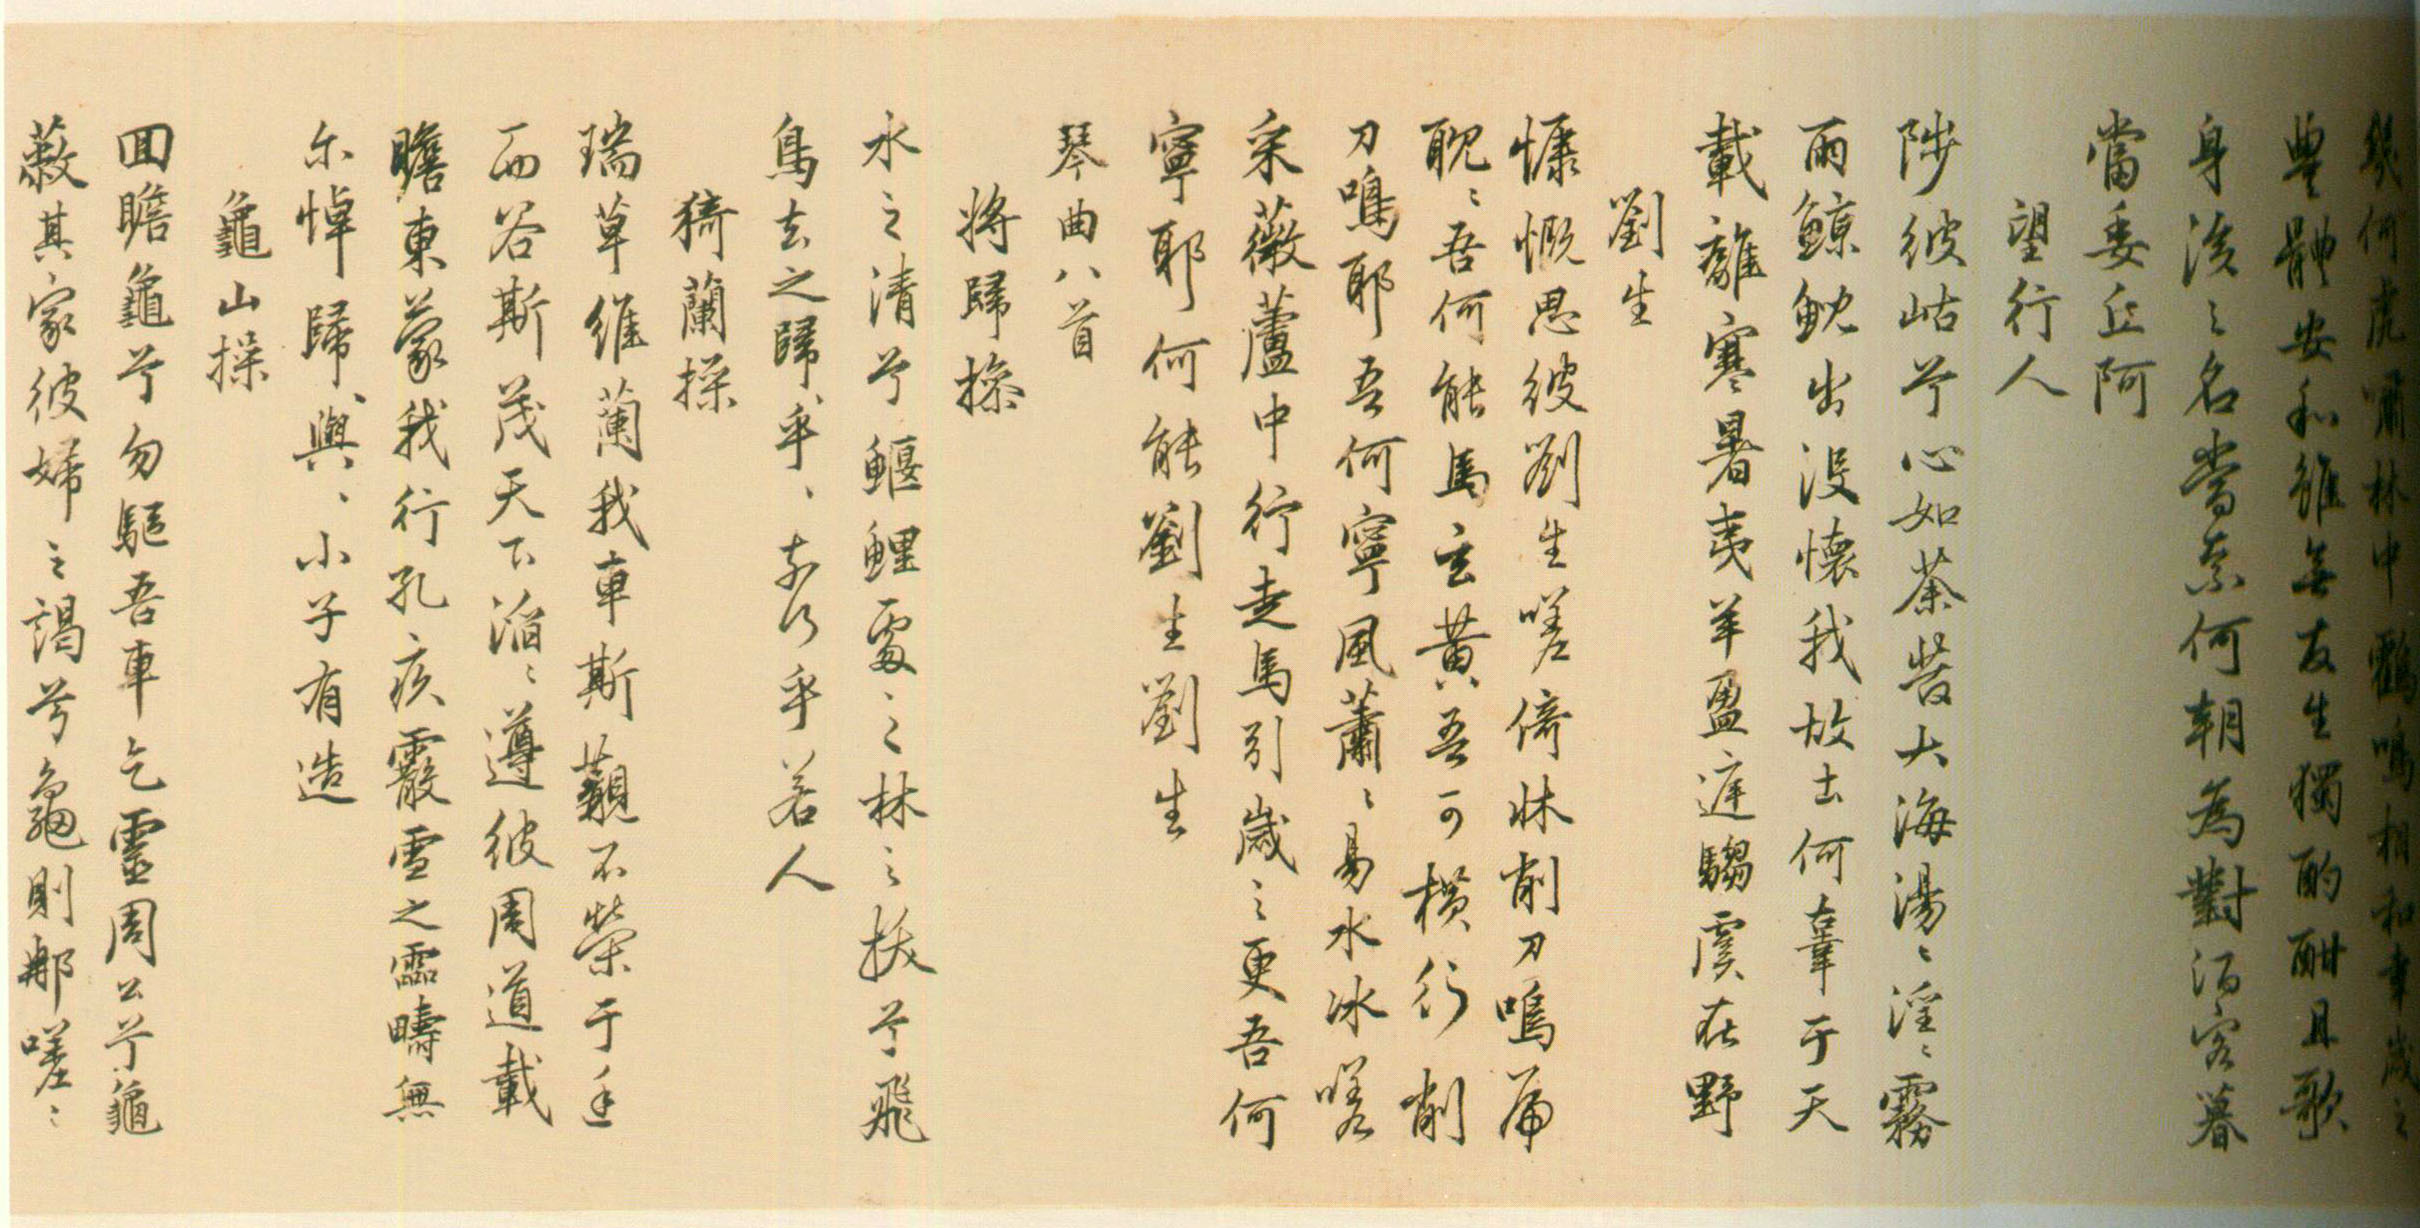 幾何虎嘯林中鸛鳴相和幸歲之
豐體安和雖無友生獨酌酣且歌
身後之名當奈何朝為對酒客暮
當委丘阿
望行人
陟彼岵兮心如荼苦大海湯〻淫〻霧
雨鯨鮀出沒懷我故土何辜于天
載離寒暑夷羊盈庭騶虞在野
劉生
慷慨思彼劉生嗟倚牀削刀鳴扁
耽〻吾何能馬玄黃吾可橫行削
刀鳴耶吾何寧風蕭〻易水冰嗟
采薇蘆中行走馬引歲之更吾何
寧耶何能劉生劉生
琴曲八首
將歸操
水之清兮鰋鯉處〻之林之扶兮飛
鳥去之歸〻乎〻乎若人
猗蘭操
瑞草維蘭我車斯覯不榮于手
西谷斯茂天下滔〻遵彼周道載
瞻東蒙我行孔疚霰雪之霑疇無
尓悼歸〻與〻小子有造
龜山操
回瞻龜兮勿驅吾車乞靈周公兮龜
蔽其家彼婦之謁兮龜則那嗟〻